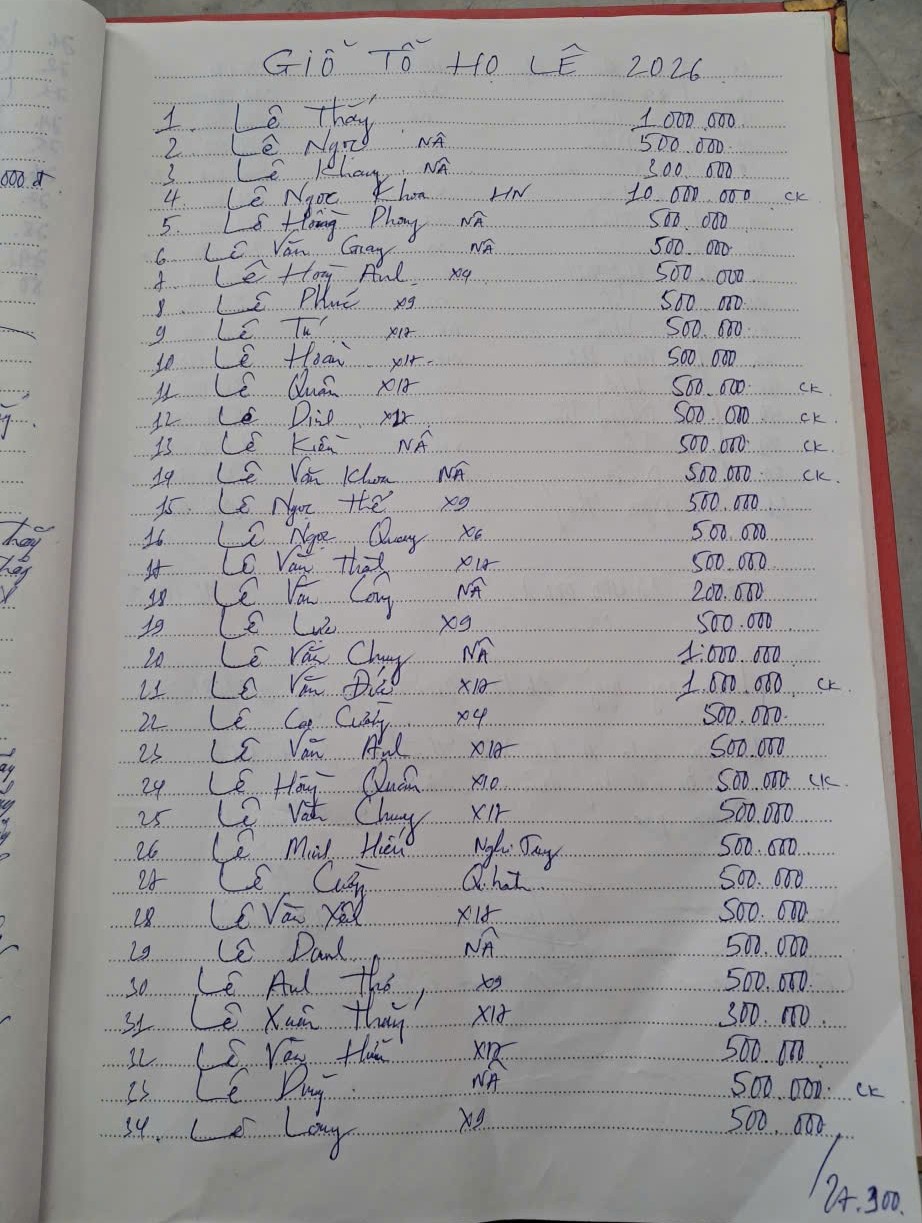 GIỖ TỔ HỌ LÊ 2026
1. Lê Thắng 1.000.000
2 Lê Ngọc NÂ 500.000
3 Lê Khang NÂ 300.000
4. Lê Ngọc Khoa HN 10.000.000 CK
5. Lê Hồng Phong NÂ 500.000
6 Lê Văn Giang NÂ 500.000
7 Lê Hoàng Anh X4 500.000
8. Lê Phúc X9 500.000
9 Lê Tú X17 500.000
10 Lê Hoàn X17 500.000
11 Lê Quân X17 500.000 CK
12 Lê Định X17 500.000 CK
13 Lê Kiên NÂ 500.000 CK
14 Lê Văn Khoa NÂ 500.000 CK
15. Lê Ngọc Thế X9 500.000
16 Lê Ngọc Quang X6 500.000
17 Lê Văn Thật X17 500.000
18 Lê Văn Công NÂ 200.000
19 Lê Lực X9 500.000
20 Lê Văn Chung NÂ 1.000.000
21 Lê Văn Đức X17 1.000.000 CK
22 Lê Cao Cường X4 500.000
23 Lê Văn Anh X17 500.000
24 Lê Hồng Quân X10 500.000 CK
25 Lê Văn Chung X17 500.000
26 Lê Minh Hiếu 500.000
27 Lê Cường 500.000
28 Lê Văn X17 500.000
29 Lê Danh NÂ 500.000
30 Lê Anh Thơ X9 500.000
31 Lê Xuân X17 300.000
32 Lê Văn X17 500.000
33 Lê Dũng NÂ 500.000 CK
34. Lê Long X9 500.000